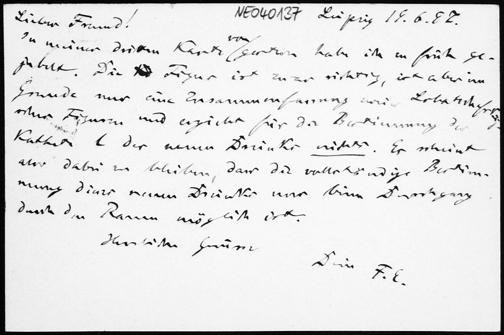 NE040137
Lieber Freund! Leipzig 19.6.97.
In meiner dritten Karte von gestern habe ich zu früh ge-
jubelt. Die Figur ist zwar richtig, ist aber im
Grunde nur eine Zusammenfassung zweier Lobatschefskij
scher Figuren und ergiebt für die Bestimmung der
Kathete b des neuen Dreiecks nichts. Es scheint
also dabei zu bleiben, dass die vollständige Bestim-
mung dieses neuen Dreiecks nur beim Durchgang
durch den Raum möglich ist.
Herzliche Grüsse
Dein F. E.